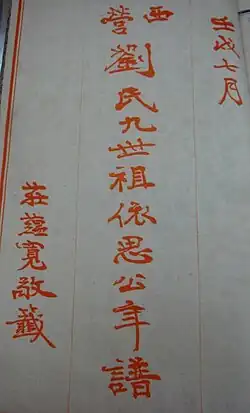 壬戌七月
西營
劉氏九世祖依思公年譜
莊蘊寬敬籤